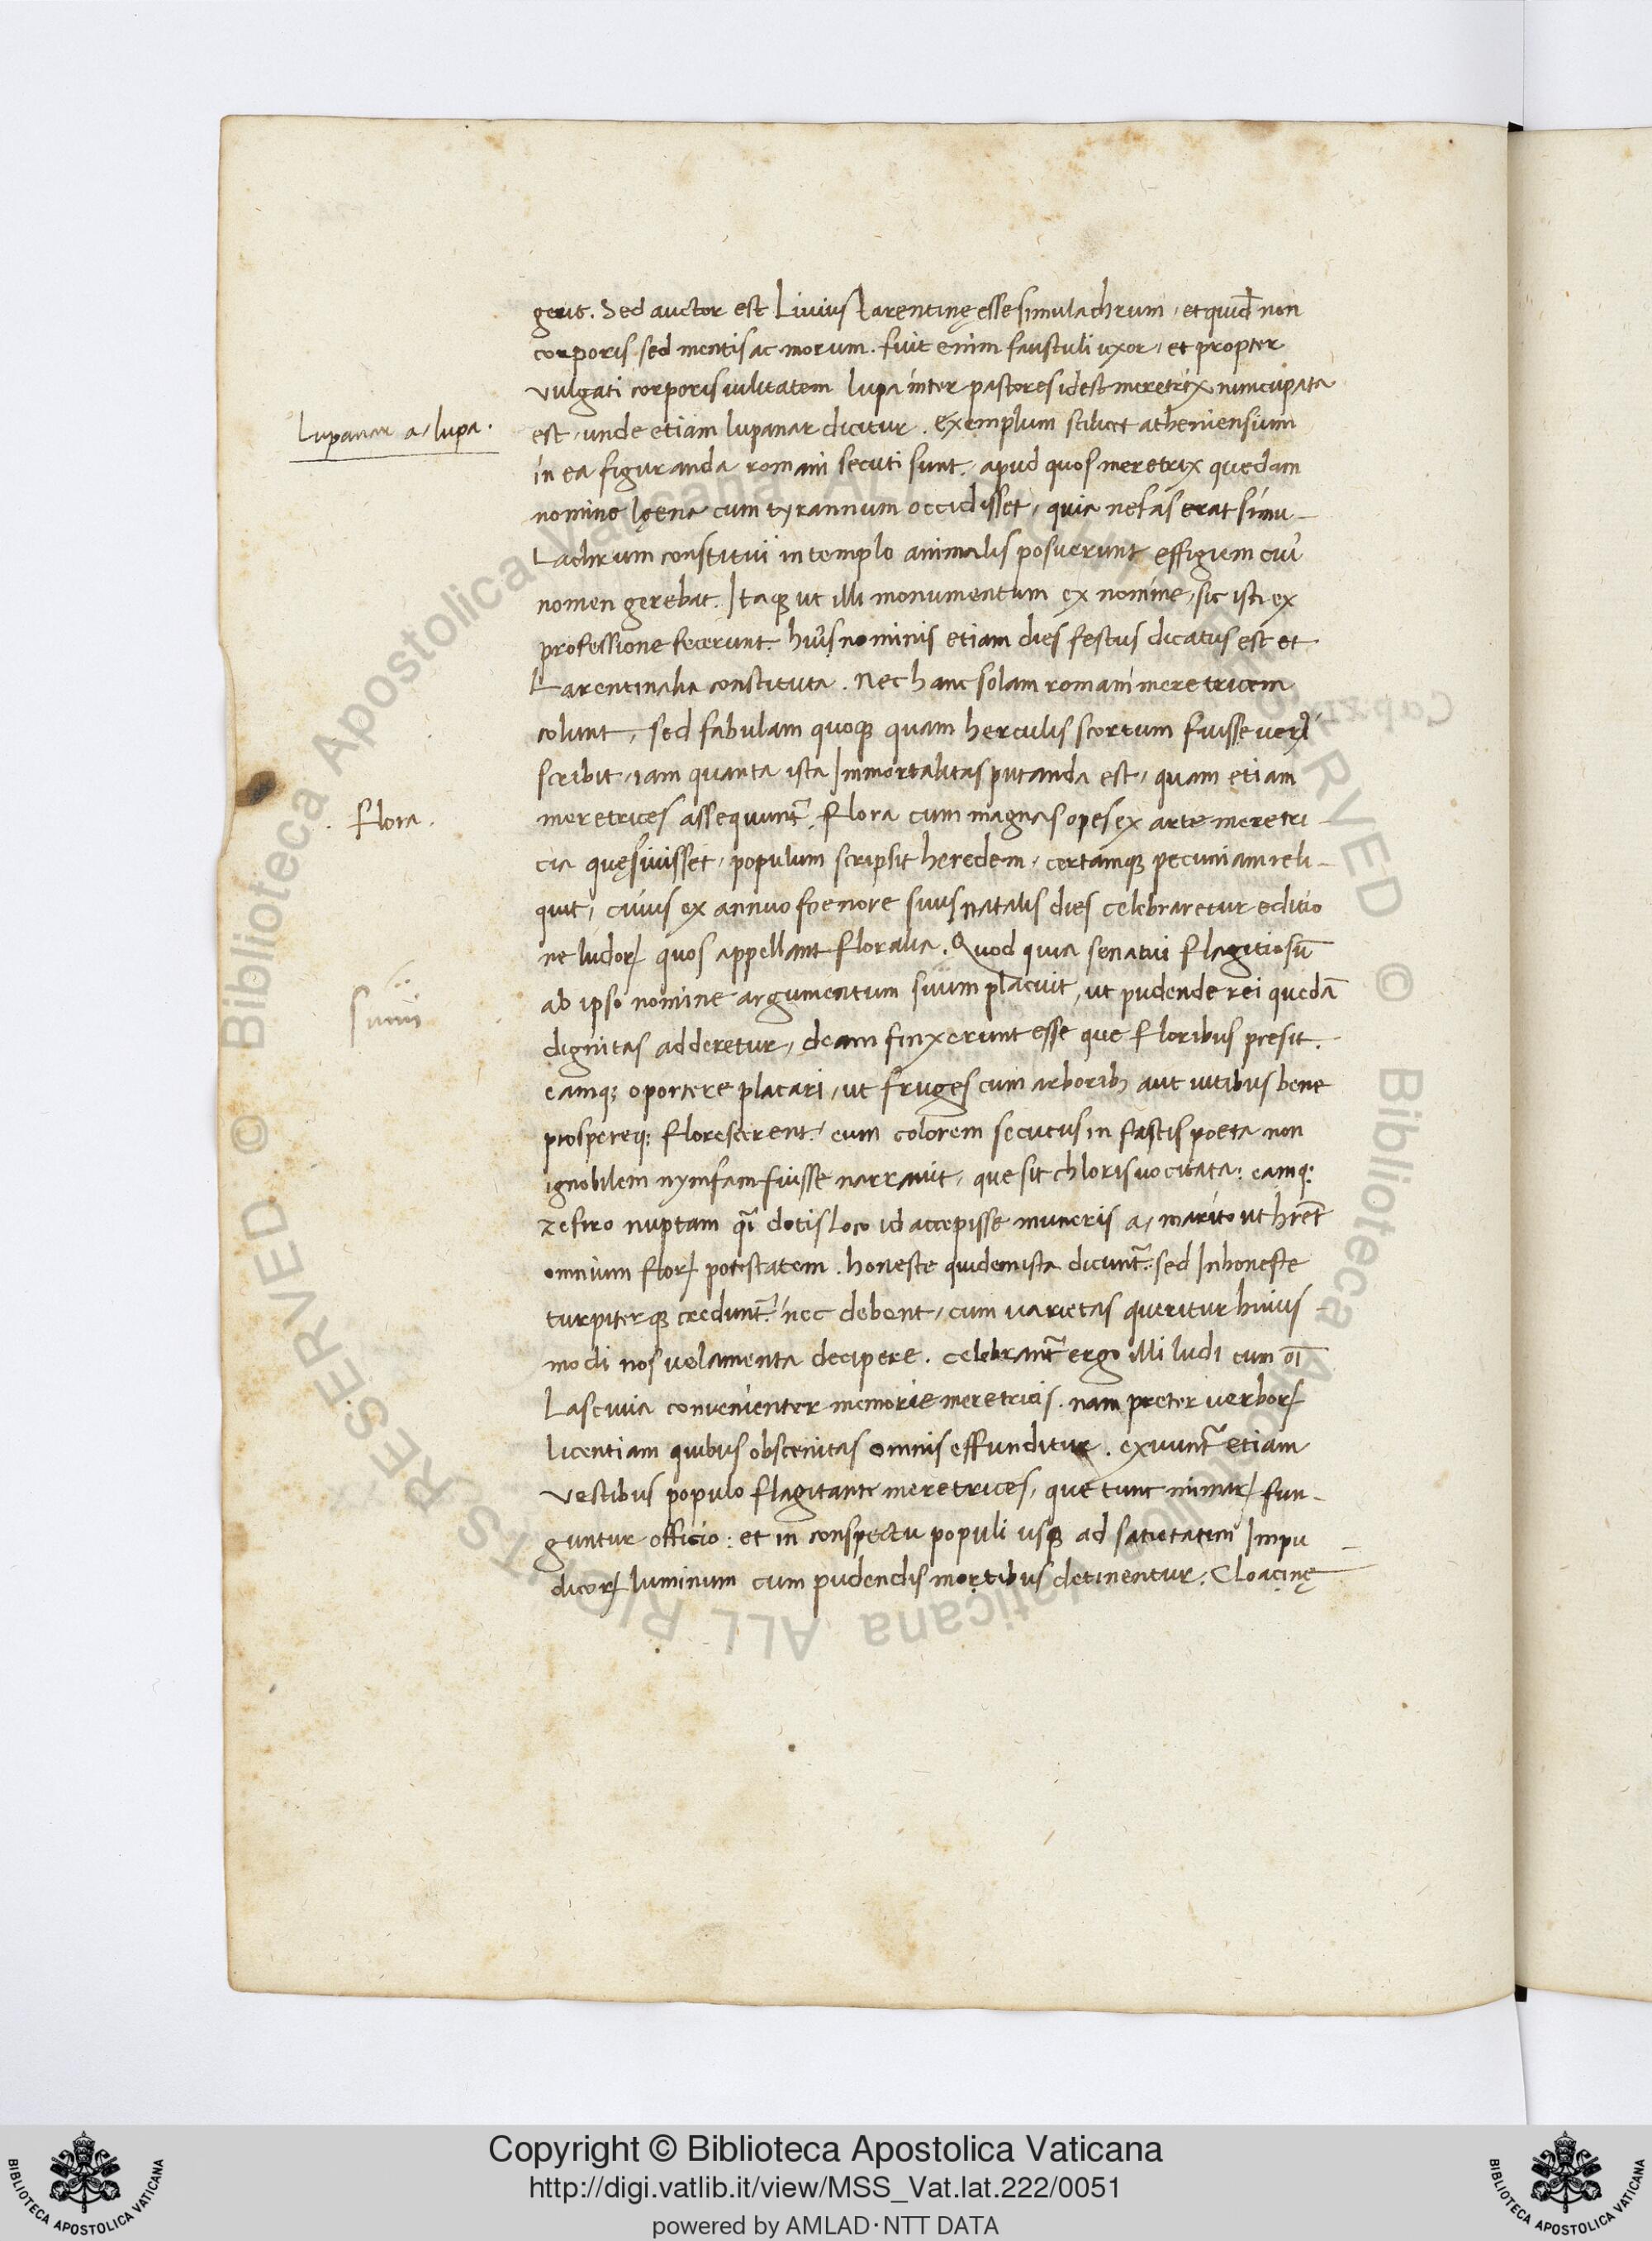 gerit. Sed auctor est Livius Larentinę esse simulachrum, et quid̄ non
corporis sed mentis ac morum. fuit enim faustuli uxor, et propter
vulgati corporis uilitatem lupa inter pastores idest meretrix nuncupata
Lupanar a, lupa.
est, unde etiam lupanar dicitur. exemplum scilicet atheniensium
in ea figuranda romani secuti sunt, apud quos meretrix quedam
nomine lęena cum tyrannum occidisset, quia nefas erat simu-
Lachrum constitui in templo animalis posuerunt effigiem cuiꝰ
nomen gerebat. Itaqꝫ ut illi monumentum ex nomine, sic isti ex
professione fecerunt. huiꝰ nominis etiam dies festus dicatus est et
Larentinalia constituta. nec hanc solam romani meretricem
colunt, sed fabulam quoqꝫ quam herculis scortum fuisse
scribit, iam quanta ista Immortalitas putanda est, quam etiam
flora.
meretrices assequunt̃. flora cum magnas opes ex arte meretri-
cia quęsiuisset, populum scripsit heredem, certamqꝫ pecuniam reli-
quit, cuius ex annuo foenore suus natalis dies celebraretur editio
ne ludoꝝ quos appellant floralia. Quod quia senatui flagitiosū
ab ipso nomine argumentum suum placuit, ut pudende rei quedā
dignitas adderetur, deam finxerunt esse que floribus presit.
eamqꝫ oportere placari, ut fruges cum arboribꝫ aut uitibus bene
prospereqꝫ florescerent. eum colorem secutus in fastis poeta non
ignobilem nymfam fuisse narrauit, que sit chloris uocitata: eamqꝫ
zefiro nuptam q̃i dotis loco id accepisse muneris a, marito ut hr̄et
omnium floꝝ potestatem. honeste quidem ista dicunt̃. sed Inhoneste
turpiterqꝫ credunt̃. nec debent, cum uarietas queritur huius-
modi nos uelamenta decipere. celebrant̃ ergo illi ludi cum oī
Lasciuia conuenienter memorie meretricis. nam preter verboꝝ
licentiam quibus obscenitas omnis effunditur. exuunt̃ etiam
vestibus populo flagitante meretrices, que tunc mimaꝝ fun-
guntur officio: et in conspectu populi usqꝫ ad satietatem Impu-
dicoꝝ luminum cum pudendis mortibus detinentur. Cloacinę
Copyright © Biblioteca Apostolica Vaticana
http://digi.vatlib.it/view/MSS_Vat.lat.222/0051
powered by AMLAD·NTT DATA
BIBLIOTECA APOSTOLICA VATICANA
BIBLIOTECA APOSTOLICA VATICANA